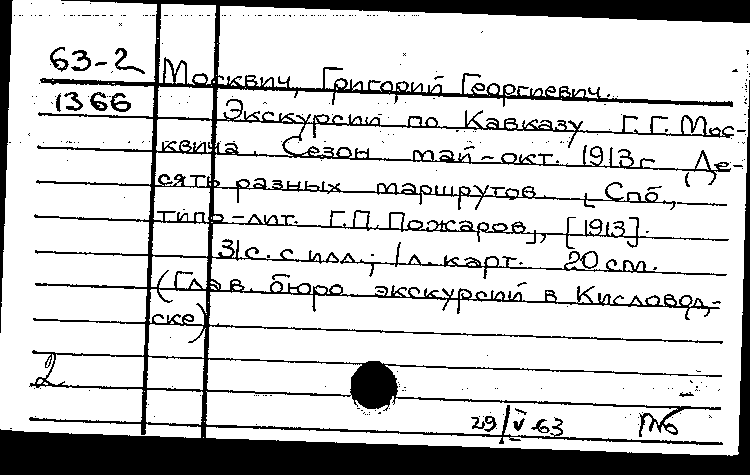 63-2 Москвич, Григорий Георгиевич.
1366
Экскурсии по Кавказу Г.Г. Мос-
квича. Сезон май-окт. 1913 г. Де-
сять разных маршрутов [Спб.,
типо-лит. Г.П. Пожаров], [1913].
31 с. с илл.; 1 л. карт. 20 см.
(Глав. бюро экскурсий в Кисловод-
ске)
2
29/V 63